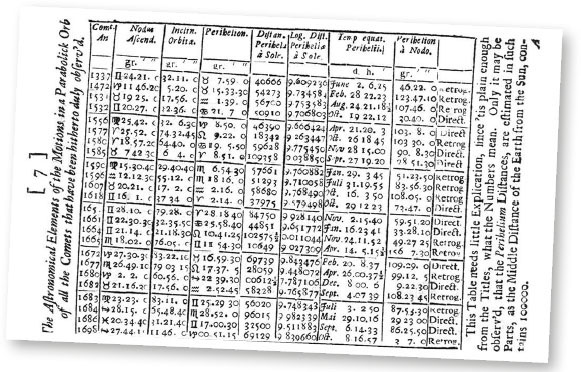 [ 7 ]
The Astronomical Elements of the Motions in a Parabolick Orb
of all the Comets that have been hitherto duly observ'd.
Comet. An Nodus Ascend. Inclin. Orbitæ. Perihelion. Distan. Perihelia à Sole. Log. Dist. Perihelia à Sole. Temp equat. Perihelii. Perihelion à Nodo.
gr. ' " gr. ' " gr. ' " d. h. gr. ' "
1337 ♊ 24.21. 0 32.11. 0 ♉ 7.59. 0 40666 9.609236 June 2. 6.25 46.22. 0 Retrog.
1472 ♑ 11.46.20 5.20. 0 ♉ 15.33.30 54273 9.734584 Feb. 28 22.23 123.47.10 Retrog.
1531 ♉ 19.25. 0 17.56. 0 ♒ 1.39. 0 56700 9.753583 Aug. 24.21.18½ 107.46. 0 Retrog.
1532 ♊ 20.27. 0 32.36. 0 ♋ 21. 7. 0 50910 9.706803 Oct. 19 22.12 30.40. 0 Direct.
1556 ♍ 25.42. 0 32. 6.30 ♑ 8.50. 0 46390 9.666424 Apr. 21.20. 3 103. 8. 0 Direct.
1577 ♈ 25.52. 0 74.32.45 ♌ 9.22. 0 18342 9.263447 Oct. 26 18.45 103.30. 0 Retrog.
1580 ♈ 18.57.20 64.40. 0 ♋ 19. 5.50 59628 9.775450 Nov. 28 15.00 90. 8.30 Direct.
1585 ♉ 7.42.30 6. 4. 0 ♈ 8.51. 0 109358 0.038850 Sep. 27 19.20 28.51.30 Direct.
1590 ♍ 15.30.40 29.40.40 ♏ 6.54.30 57661 9.760882 Jan. 29. 3.45 51.23.50 Retrog
1596 ♒ 12.12.30 55.12. 0 ♏ 18.16. 0 51293 9.710058 July 31.19.55 83.56.30 Retrog
1607 ♉ 20.21. 0 17. 2. 0 ♒ 2.16. 0 58680 9.768490 Oct. 16. 3.50 108.05. 0 Retrog
1618 ♊ 16. 1. 0 37.34. 0 ♈ 2.14. 0 37975 9.579498 Oct. 29 12.23 73.47. 0 Direct.
1652 ♊ 28.10. 0 79.28. 0 ♈ 28.18.40 84750 9.928140 Nov. 2.15.40 59.51.20 Direct.
1661 ♊ 22.30.30 32.35.50 ♋ 25.58.40 44851 9.651772 Jan. 16.23.41 33.28.10 Direct.
1664 ♊ 21.14. 0 21.18.30 ♌ 10.41.25 102575½ 0.011044 Nov. 24.11.52 49.27.25 Retrog
1665 ♏ 18.02. 0 76.05. 0 ♊ 11.54.30 10649 9.027309 Apr. 14. 5.15½ 156. 7.30 Retrog
1672 ♑ 27.30.30 83.22.10 ♉ 16.59.30 69739 9.843476 Feb. 20. 8.37 109.29. 0 Direct.
1677 ♏ 26.49.10 79.03.15 ♌ 17.37. 5 28059 9.448072 Apr. 26.00.37½ 99.12. 5 Retrog
1680 ♑ 2. 2. 0 60.56. 0 ♐ 22.39.30 00612½ 7.787106 Dec. 8.00. 6 9.22.30 Direct.
1682 ♉ 21.16.30 17.56. 0 ♒ 2.52.45 58328 9.765877 Sept. 4.07.39 108.23.45 Retrog.
1683 ♍ 23.23. 0 83.11. 0 ♊ 25.29.30 56020 9.748343 July 3. 2.50 87.53.30 Retrog.
1684 ♐ 28.15. 0 65.48.40 ♏ 28.52. 0 96015 9.982339 Mai 29.10.16 29.23.00 Direct.
1686 ♓ 20.34.40 31.21.40 ♊ 17.00.30 32500 9.511883 Sept. 6.14.33 86.25.50 Direct.
1698 ♐ 27.44.15 11.46. 0 ♑ 00.51.15 69129 9.839660 Oct. 8.16.57 3. 7. 0 Retrog.
This Table needs little Explication, since 'tis plain enough
from the Titles, what the Numbers mean. Only it may be
observ'd, that the Perihelium Distances, are estimated in such
Parts, as the Middle Distance of the Earth from the Sun, con-
tains 100000.